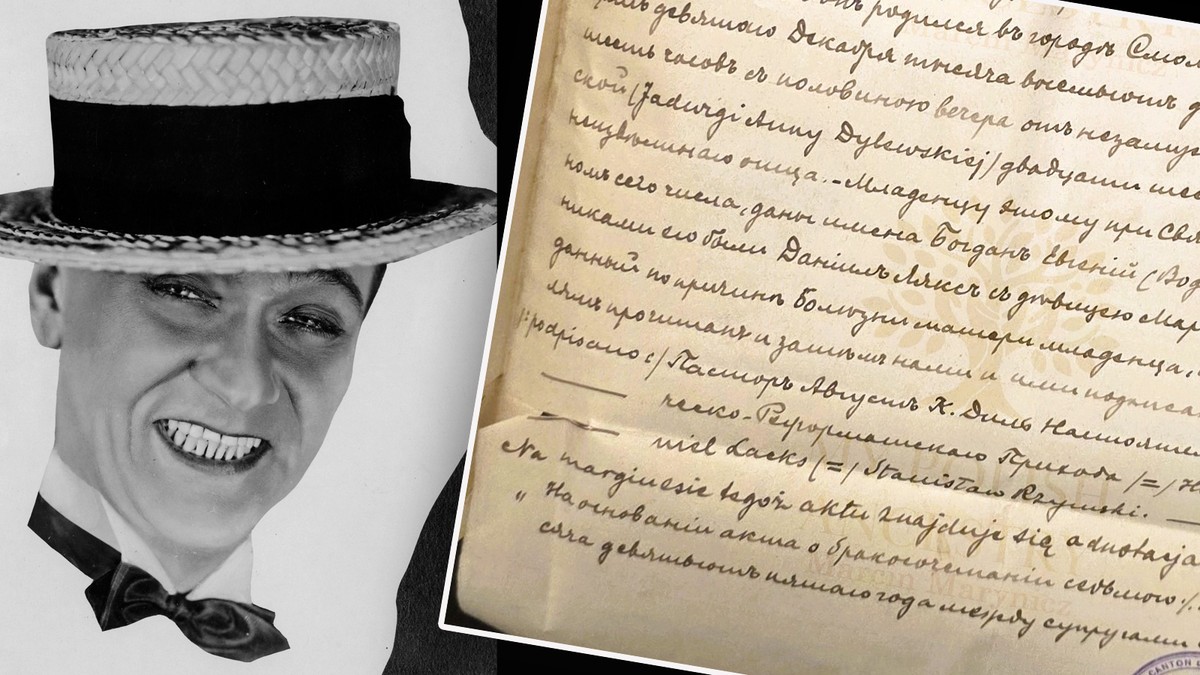 родился въ городѣ Смол
девятаго Декабря тысяча восемьсотъ
шесть часовъ съ половиною вечера отъ незаму
ской /Jadwigi Anny Dylewskiej/ двадцати шес
неизвѣстнаго отца. - Младенцу этому при Свя
номъ сего числа, даны имена Богданъ Евгеній (Bog
никами его были Даніилъ Ляксъ съ дѣвицею Мар
данный по причинѣ болѣзни матери младенца,
прочитанъ и затѣмъ нами и ими подписа
/:podpisano:/ Пасторъ Августъ К. Диль Настоятел
ческо-Реформатскаго Прихода /=/
niel Lacks /=/ Stanisław Rzymski.
Na marginesie tegoż aktu znajduje się adnotacja
" На основаніи акта о бракосочетаніи седьмого
сяча девятьсотъ пятаго года между супругами
MY POLISH
ANCESTRY
Marcin Marynicz